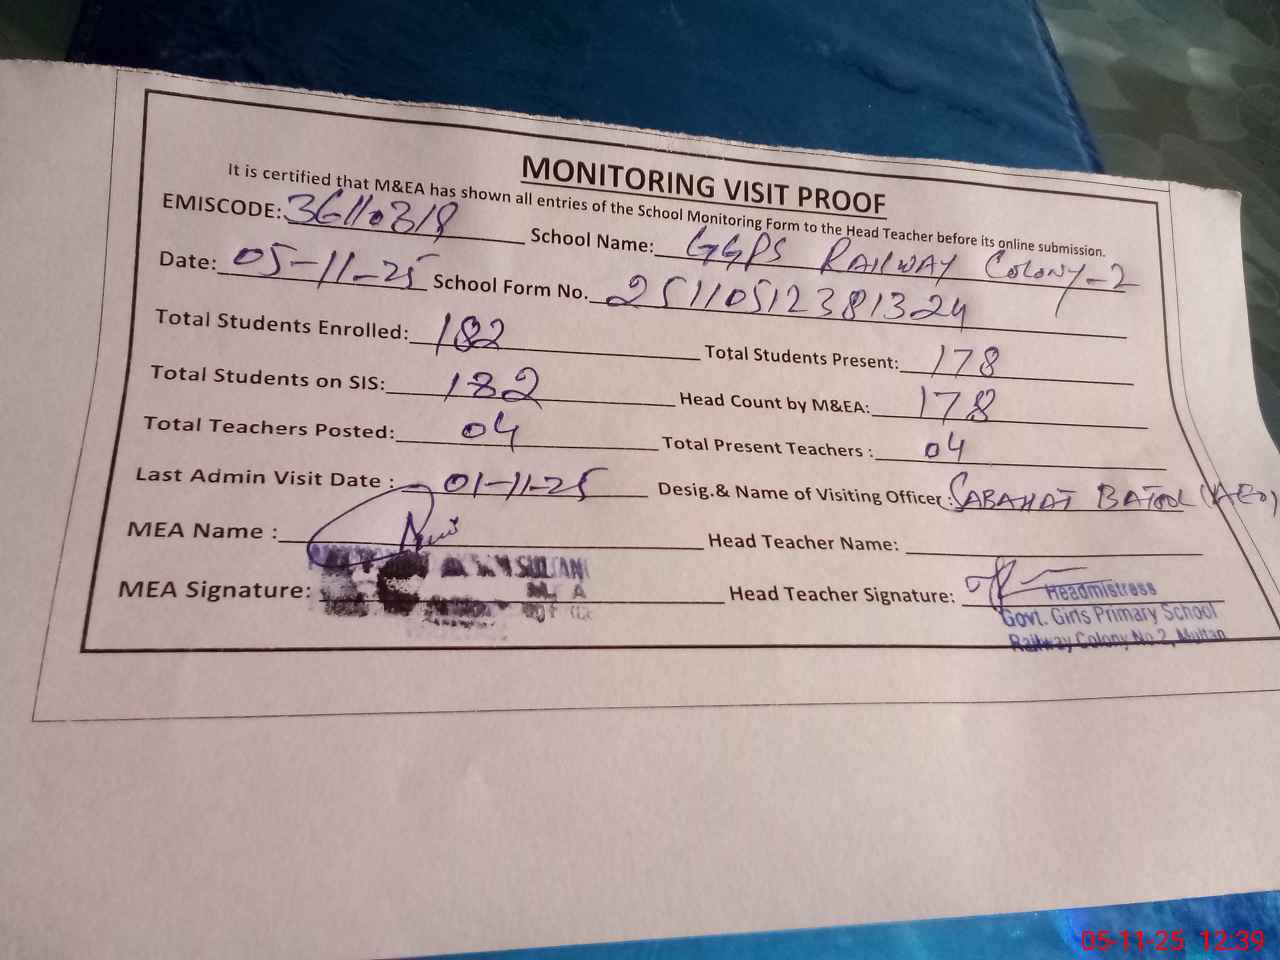 MONITORING VISIT PROOF
It is certified that M&EA has shown all entries of the School Monitoring Form to the Head Teacher before its online submission.
EMISCODE: 36110318 School Name: GGPS RAILWAY COLONY-2
Date: 05-11-25 School Form No. 25110512381324
Total Students Enrolled: 182 Total Students Present: 178
Total Students on SIS: 182 Head Count by M&EA: 178
Total Teachers Posted: 04 Total Present Teachers : 04
Last Admin Visit Date : 01-11-25 Desig.& Name of Visiting Officer : SABAHAT BATOOL (AEO)
MEA Name : Head Teacher Name:
SULTAN
MEA Signature: Head Teacher Signature:
Headmistress
Govt. Girls Primary School
Railway Colony No 2, Multan
05-11-25 12:39